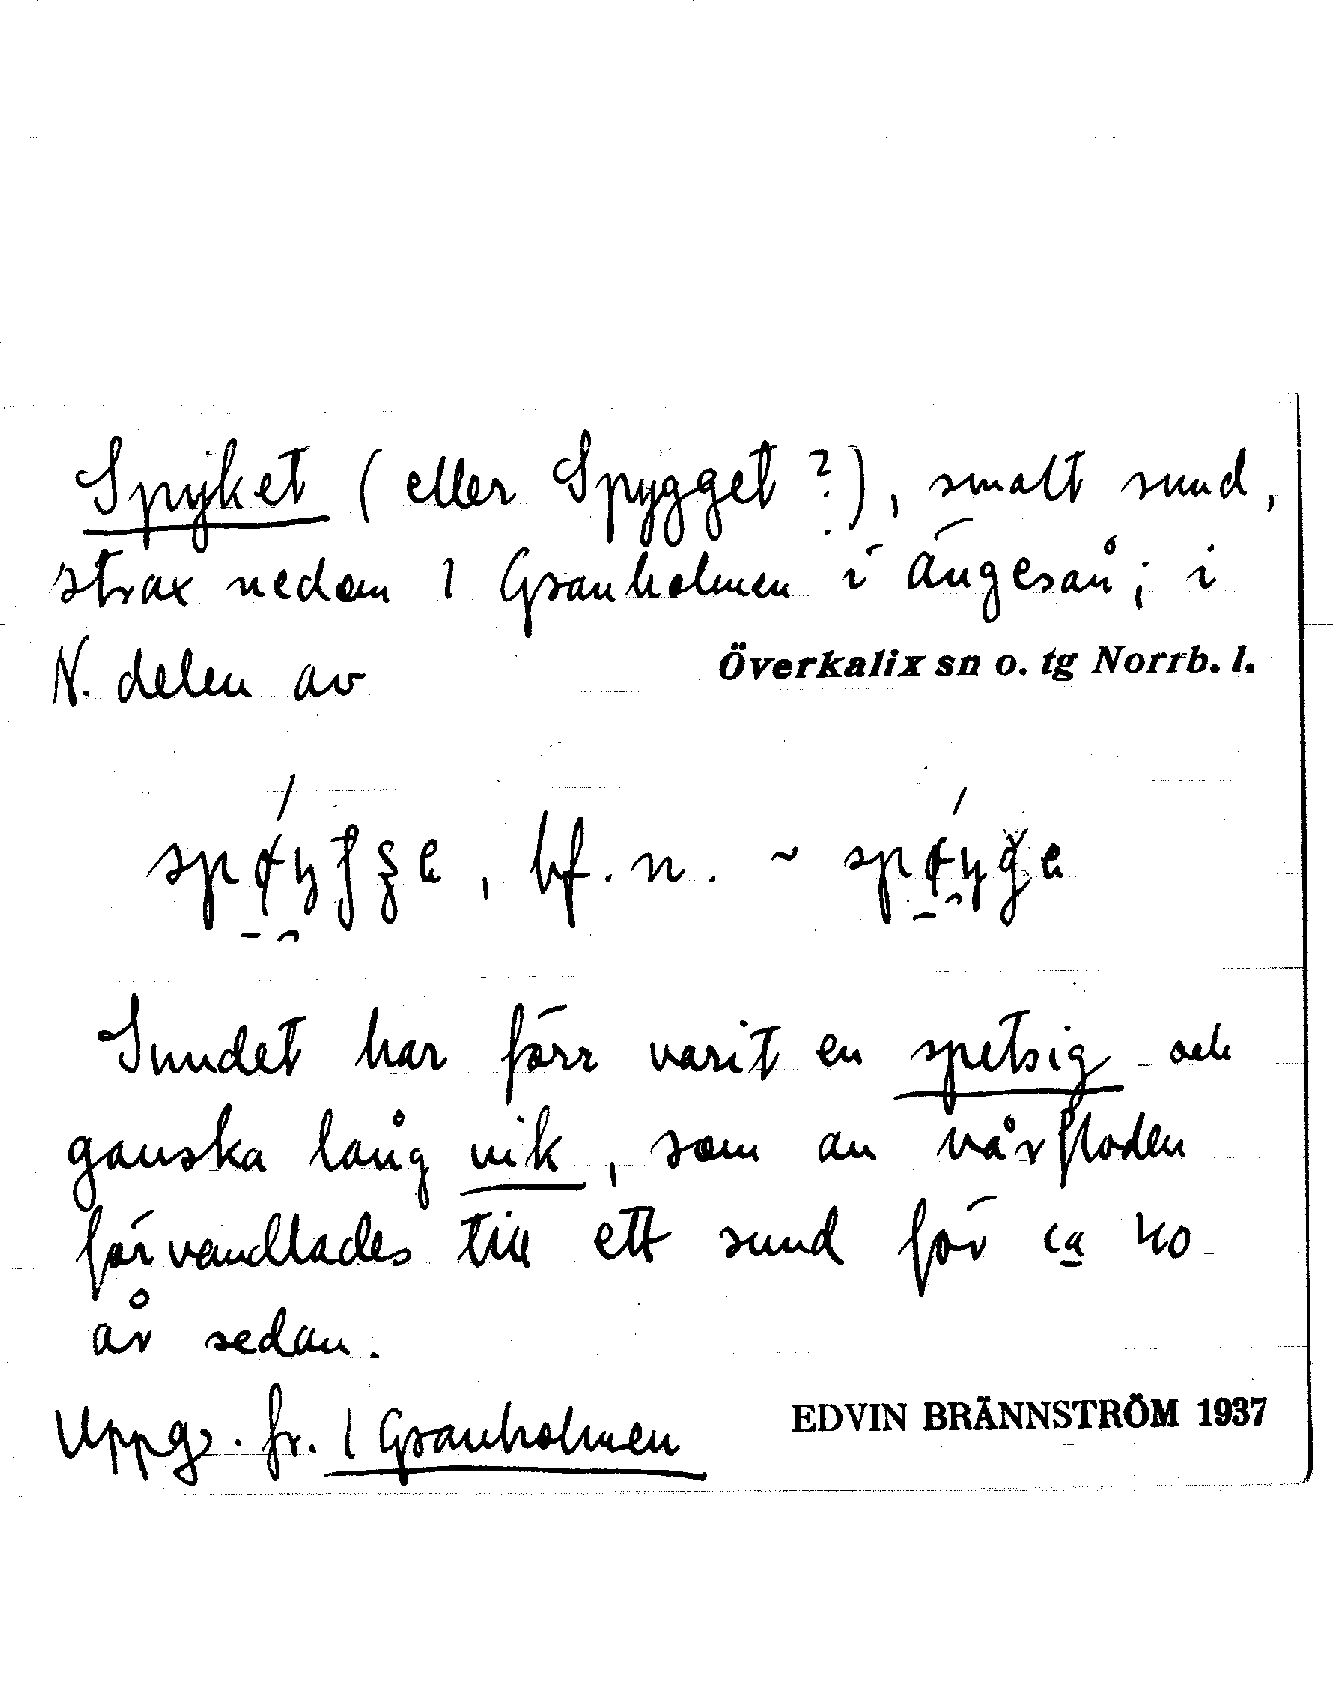 Spyket (eller Spygget?), smalt sund,
strax nedom 1 Granholmen i Ängesån; i
N. delen av Överkalix sn o. tg Norrb. l.
bf. n. ~
Sundet har förr varit en spetsig och
ganska lång vik, som av vårfloden
förvandlades till ett sund för ca 40
år sedan.
Uppg. fr. 1 Granholmen EDVIN BRÄNNSTRÖM 1937